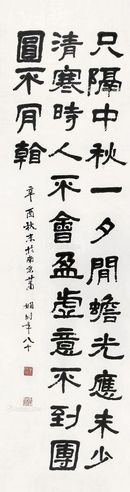 只隔中秋一夕間蟾光應未少
清寒時人不會盈虛意不到團
圓不肎看
辛酉秋末於南京蕭嫻時年八十